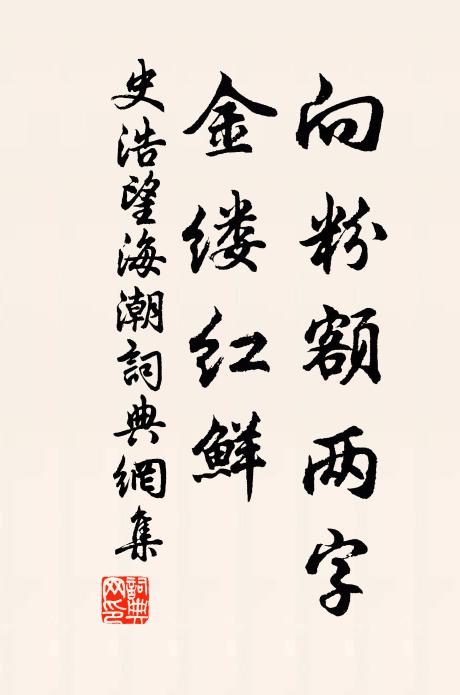 向粉额两字
金缕红鲜
史浩望海潮詞典網集
詞典网印